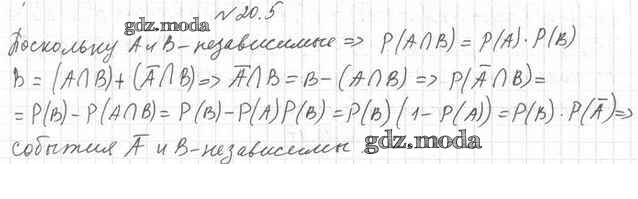 № 20.5
gdz.moda
Поскольку A и B - независимые => P(A∩B) = P(A)·P(B)
B = (A∩B)+(A̅∩B) => A̅∩B = B-(A∩B) => P(A̅∩B)=
= P(B)-P(A∩B) = P(B)-P(A)P(B) = P(B)(1-P(A)) = P(B)·P(A̅) =>
события A̅ и B - независимы
gdz.moda